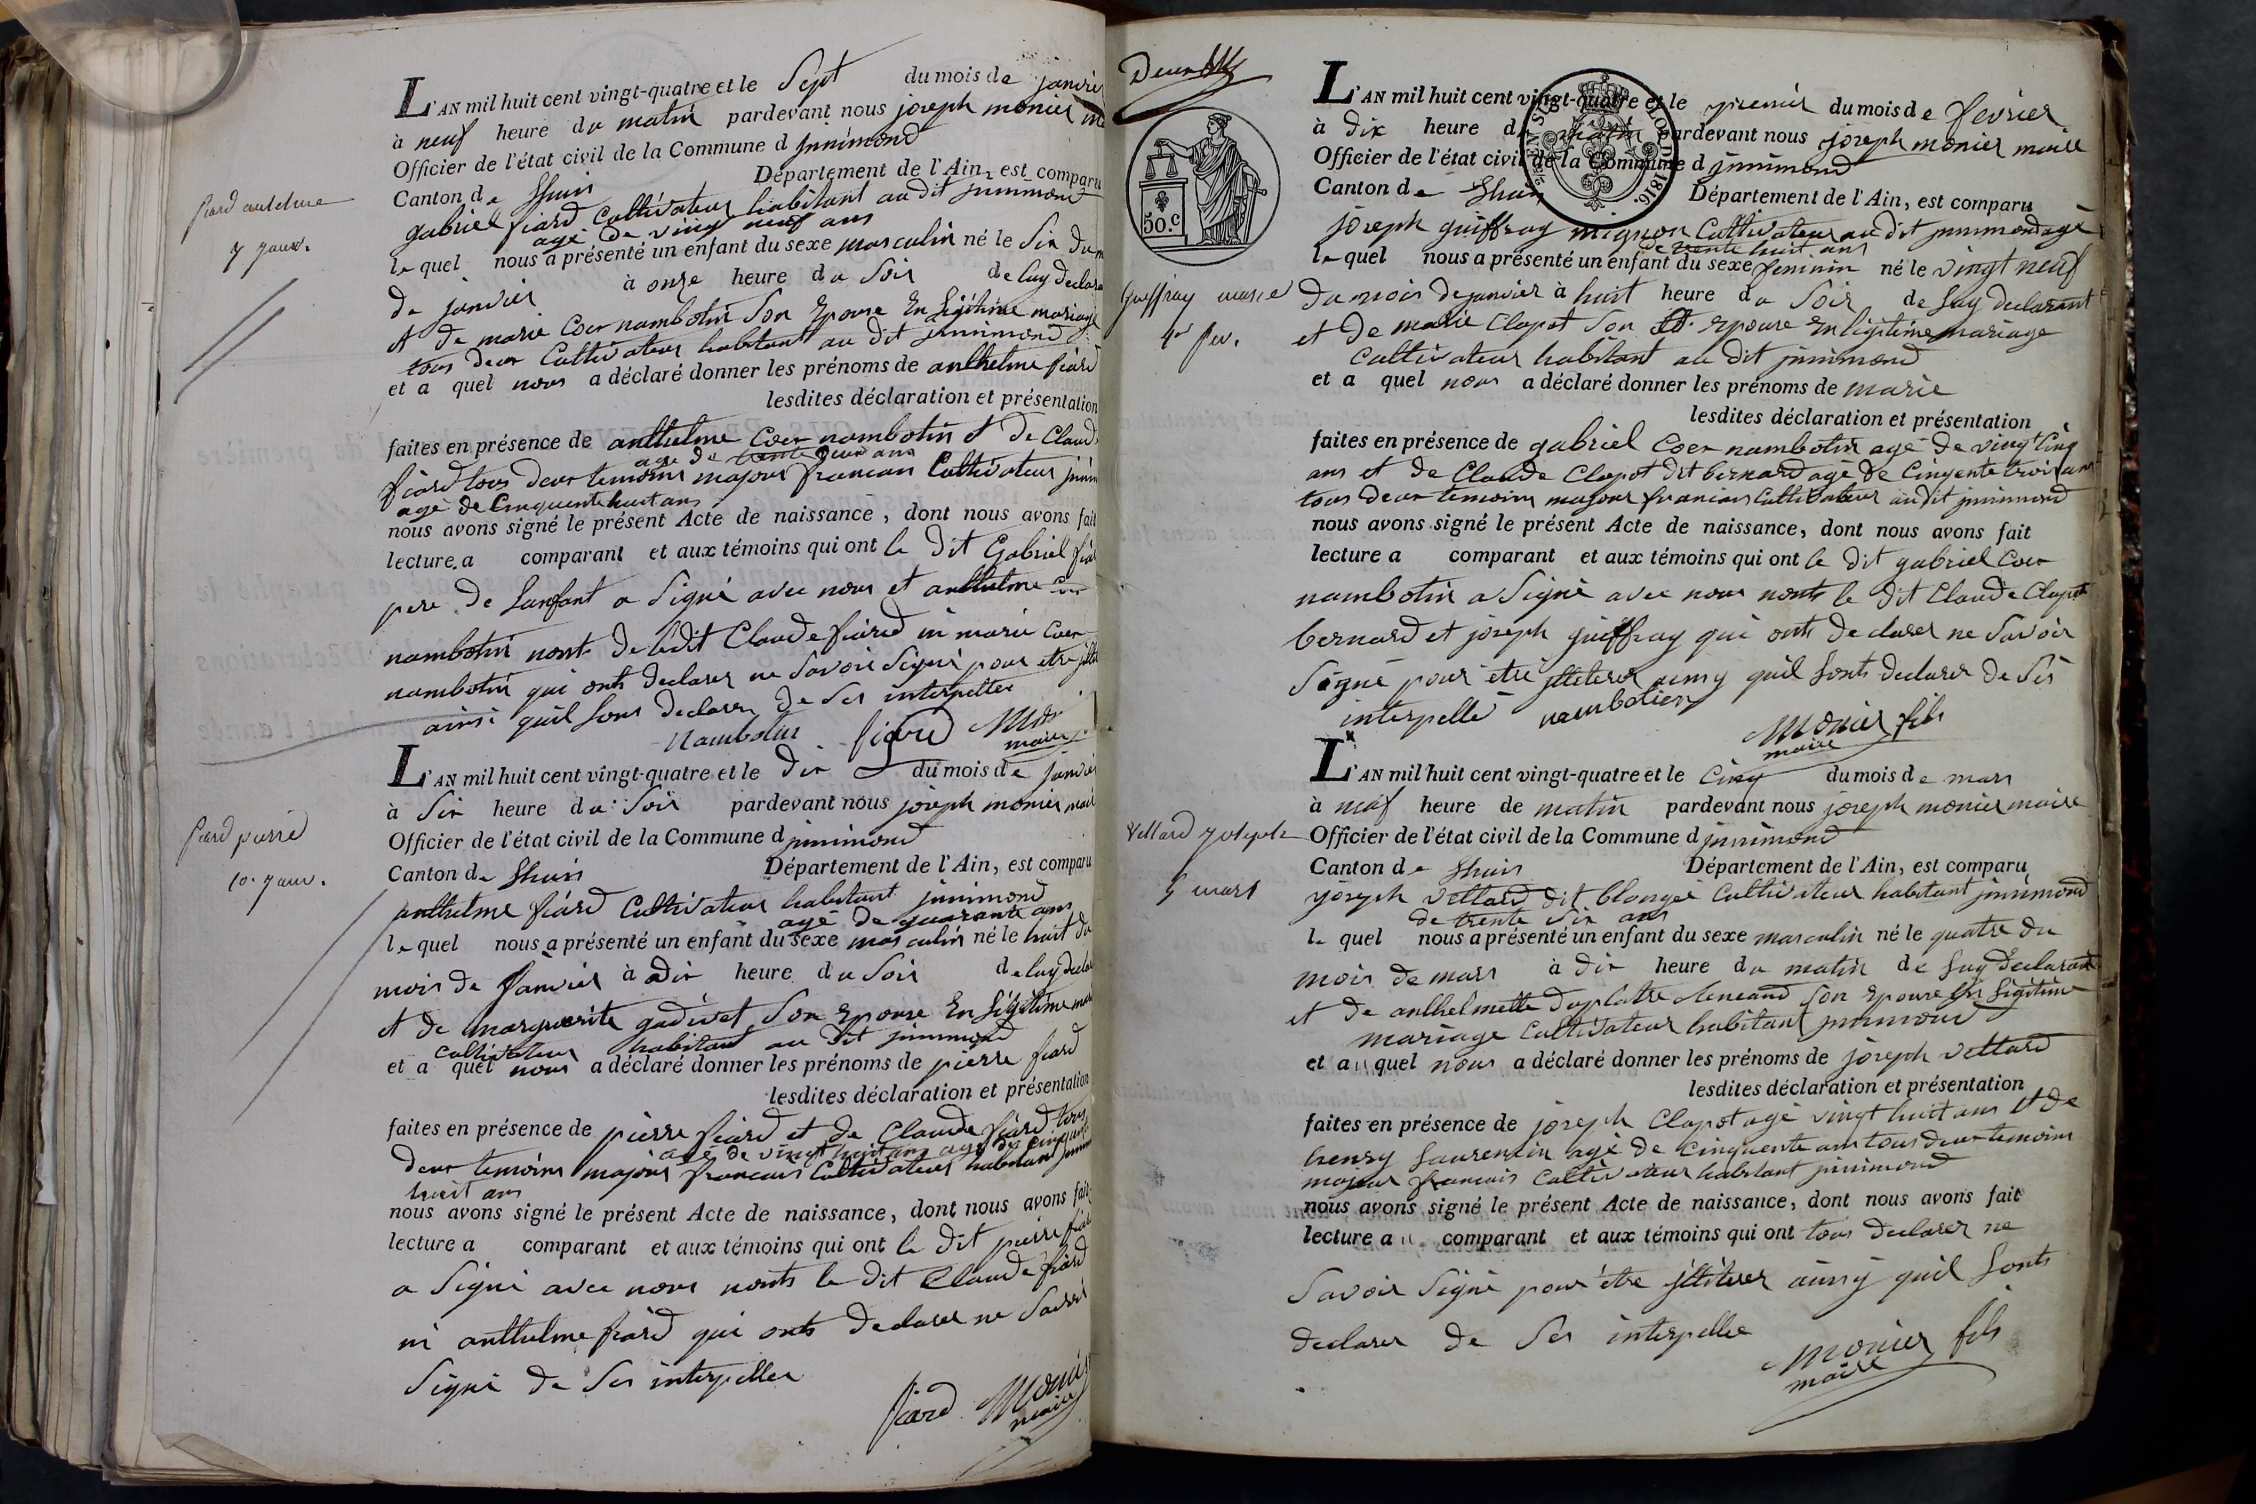 L'AN mil huit cent vingt-quatre et le Sept du mois de janvier
à neuf heure du matin pardevant nous joseph monier
Officier de l'état civil de la Commune d jnnimond
Canton de Lhuis Département de l'Ain, est comparu
gabriel fiard Cultivateur habitant au dit jnnimond
agé de vingt neuf ans
le quel nous a présenté un enfant du sexe masculin né le Six du
de janvier à onze heure du Soir de luy declarant
et de marie Coer nambotin Son Epouse En Légitime mariage
tous deux Cultivateur habitant au dit jnnimond
et a quel nous a déclaré donner les prénoms de anthelme fiard
lesdites déclaration et présentation
faites en présence de anthelme Coer nambotin et De Claude
age de trente deux ans
fiard tous deux temoins majour francais Cultivateur
agé de Cinquente huit ans
nous avons signé le présent Acte de naissance, dont nous avons fait
lecture a comparant et aux témoins qui ont le Dit Gabriel fiard
pere De Lanfant a Signé avec nous et anthelme Coer
nambotin nonts De ledit Claude fiard ni marie Coer
nambotin qui onts declarer ne Savoir Signé pour etre
ainsi quil Sons Declarer De Ses interpeller
Nambotin fiard Monier
maire
fiard anthelme
7 janv.
L'AN mil huit cent vingt-quatre et le Dix du mois de janvier
à Six heure du Soir pardevant nous joseph monier maire
Officier de l'état civil de la Commune d jnnimond
Canton de Lhuis Département de l'Ain, est comparu
anthelme fiard Cultivateur habitant jnnimond
agé De quarante ans
le quel nous a présenté un enfant du sexe masculin né le huit du
mois de Janvier à Dix heure du Soir de luy declarant
et De marguerite gudivet Son Epouse En Légitime
cultivateur habitant au dit jnnimond
et a quel nous a déclaré donner les prénoms de pierre fiard
lesdites déclaration et présentation
faites en présence de pierre fiard et de Claude fiard tous
age de vingt huit ans agé de cinquante
deux temoins majour francais Cultivateur habitant
huit ans
nous avons signé le présent Acte de naissance, dont nous avons fait
lecture a comparant et aux témoins qui ont le Dit pierre fiard
a Signé avec nous nonts le Dit Claude fiard
ni anthelme fiard qui onts Declarer ne Savoir
Signé De Ses interpeller
fiard Monier
maire
fiard pierre
10. janv.
50.c
L'AN mil huit cent vingt-quatre et le premier du mois de fevrier
à Dix heure du matin pardevant nous joseph monier maire
Officier de l'état civil de la Commune d jnnimond
Canton de Lhuis Département de l'Ain, est comparu
joseph guiffray mignon Cultivateur au dit jnnimond agé
de trente huit ans
le quel nous a présenté un enfant du sexe feminin né le vingt neuf
Du mois De janvier à huit heure du Soir de luy declarant
et De marie Clapot Son Epouse En legitime mariage
Cultivateur habitant au dit jnnimond
et a quel nous a déclaré donner les prénoms de marie
lesdites déclaration et présentation
faites en présence de gabriel Coer nambotin agé De vingt Cinq
ans et de Claude Clapot dit bernard agé de Cinqente trois ans
tous deux temoins majour francais Cultivateur au dit jnnimond
nous avons signé le présent Acte de naissance, dont nous avons fait
lecture a comparant et aux témoins qui ont le Dit gabriel Coer
nambotin a Signé avec nous nonts le Dit Claude Clapot
bernard et joseph guiffray qui onts Declarer ne Savoir
Signé pour etre jlliterer aussy quil Sonts Declarer De Ses
interpellé nambotien
Monier fils
maire
Guiffray marie
1er fev.
L'AN mil huit cent vingt-quatre et le Cinq du mois de mars
à neuf heure de matin pardevant nous joseph monier maire
Officier de l'état civil de la Commune d jnnimond
Canton de Lhuis Département de l'Ain, est comparu
joseph vettard dit blongé Cultivateur habitant jnnimond
de trente Six ans
le quel nous a présenté un enfant du sexe masculin né le quatre du
mois de mars à Dix heure du matin de luy declarant
et De anthelmette Duplatre Son Epouse En Légitime
mariage Cultivateur habitant jnnimond
et au quel nous a déclaré donner les prénoms de joseph vettard
lesdites déclaration et présentation
faites en présence de joseph Clapot agé vingt huit ans et de
henry Laurentin agé De Cinquente ans tous deux temoins
majour francais Cultivateur habitant jnnimond
nous avons signé le présent Acte de naissance, dont nous avons fait
lecture au comparant et aux témoins qui ont tous declarer ne
Savoir Signé pour être jlliterer aussy quil Sonts
declarer De Ses interpelle
Monier fils
maire
Vettard joseph
5 mars